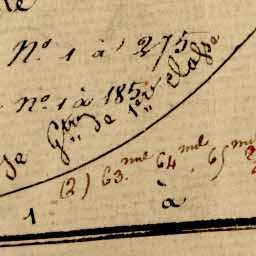 N.º 1 à 275
n.º 1 à 185
de 1ere classe
(2) 63.me 64 me 65 me
1 à